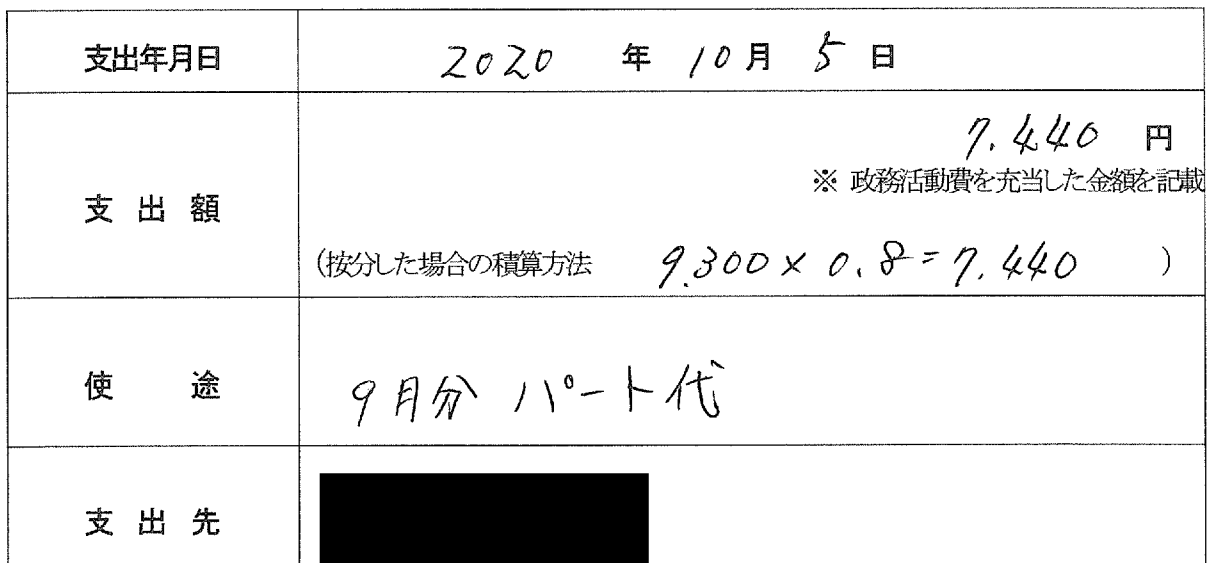 支出年月日 2020 年 10月 5日
7.440 円
※ 政務活動費を充当した金額を記載
支出額
(按分した場合の積算方法 9.300×0.8=7.440 )
使途 9月分 パート代
支出先